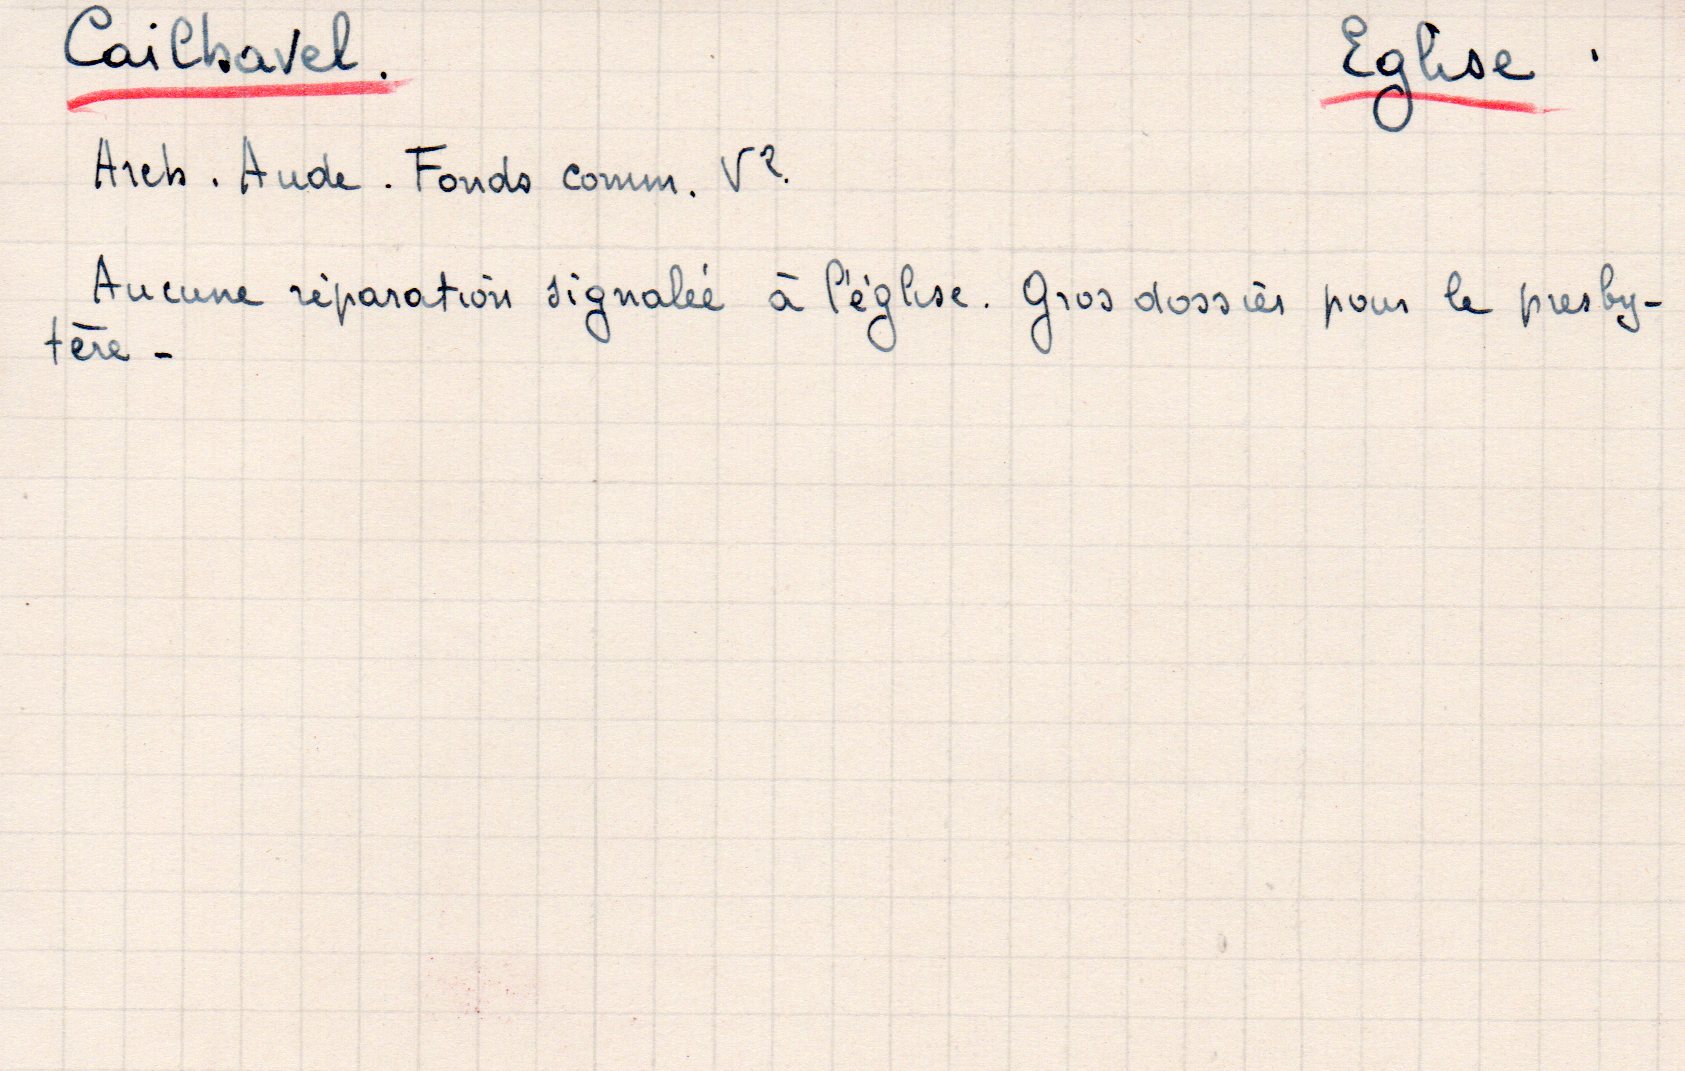 Cailhavel. Eglise.
Arch. Aude. Fonds comm. V².
Aucune réparation signalée à l'église. Gros dossier pour le presby-
tère -